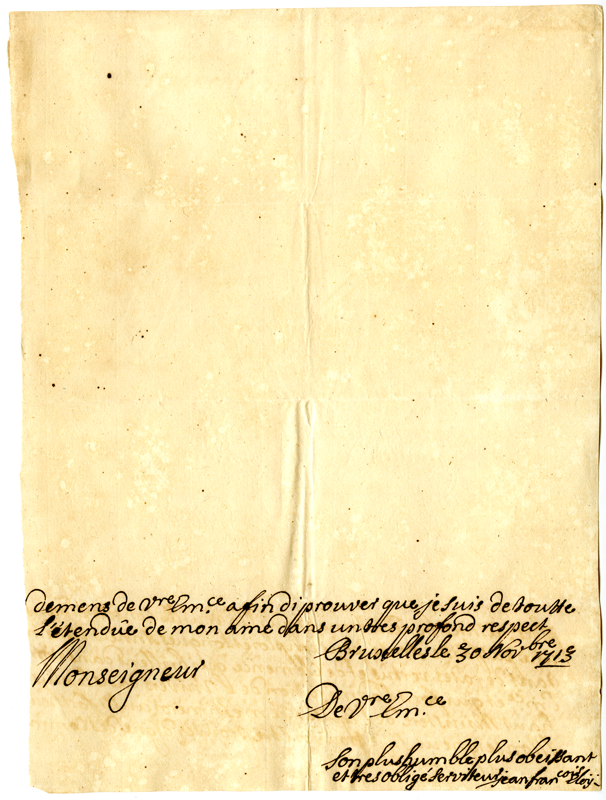 demens de vre Em.ce afin di prouver que je suis de toutte
l'étendüe de mon ame dans un tres profond respect
Bruxelles le 30 Novbre 1713
Monseigneur
De Vre Em.ce
son plus humble plus obeissant
et tres obligé serviteur jean franc